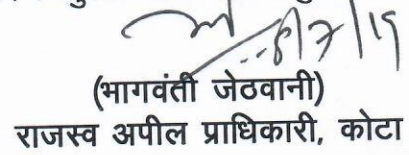 8/7/19
(भागवंती जेठवानी)
राजस्व अपील प्राधिकारी, कोटा